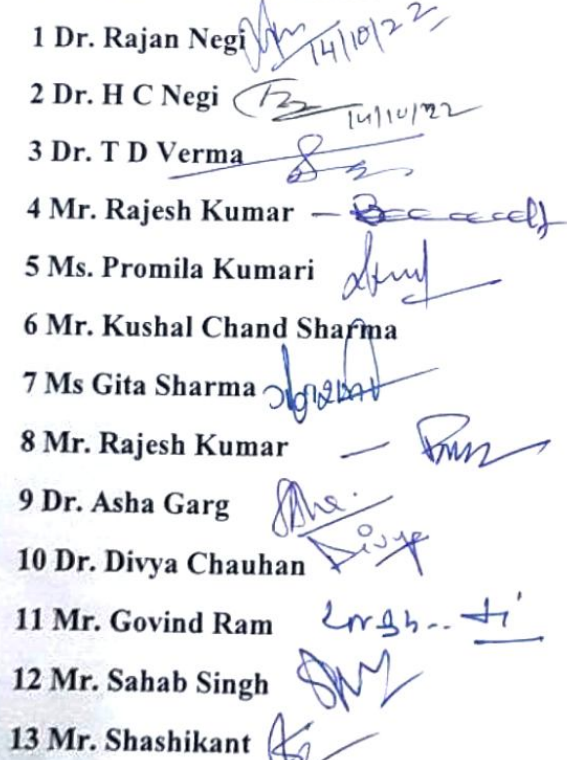 1 Dr. Rajan Negi 14/10/22
2 Dr. H C Negi 14/10/22
3 Dr. T D Verma
4 Mr. Rajesh Kumar –
5 Ms. Promila Kumari
6 Mr. Kushal Chand Sharma
7 Ms Gita Sharma
8 Mr. Rajesh Kumar –
9 Dr. Asha Garg
10 Dr. Divya Chauhan Divya
11 Mr. Govind Ram
12 Mr. Sahab Singh
13 Mr. Shashikant